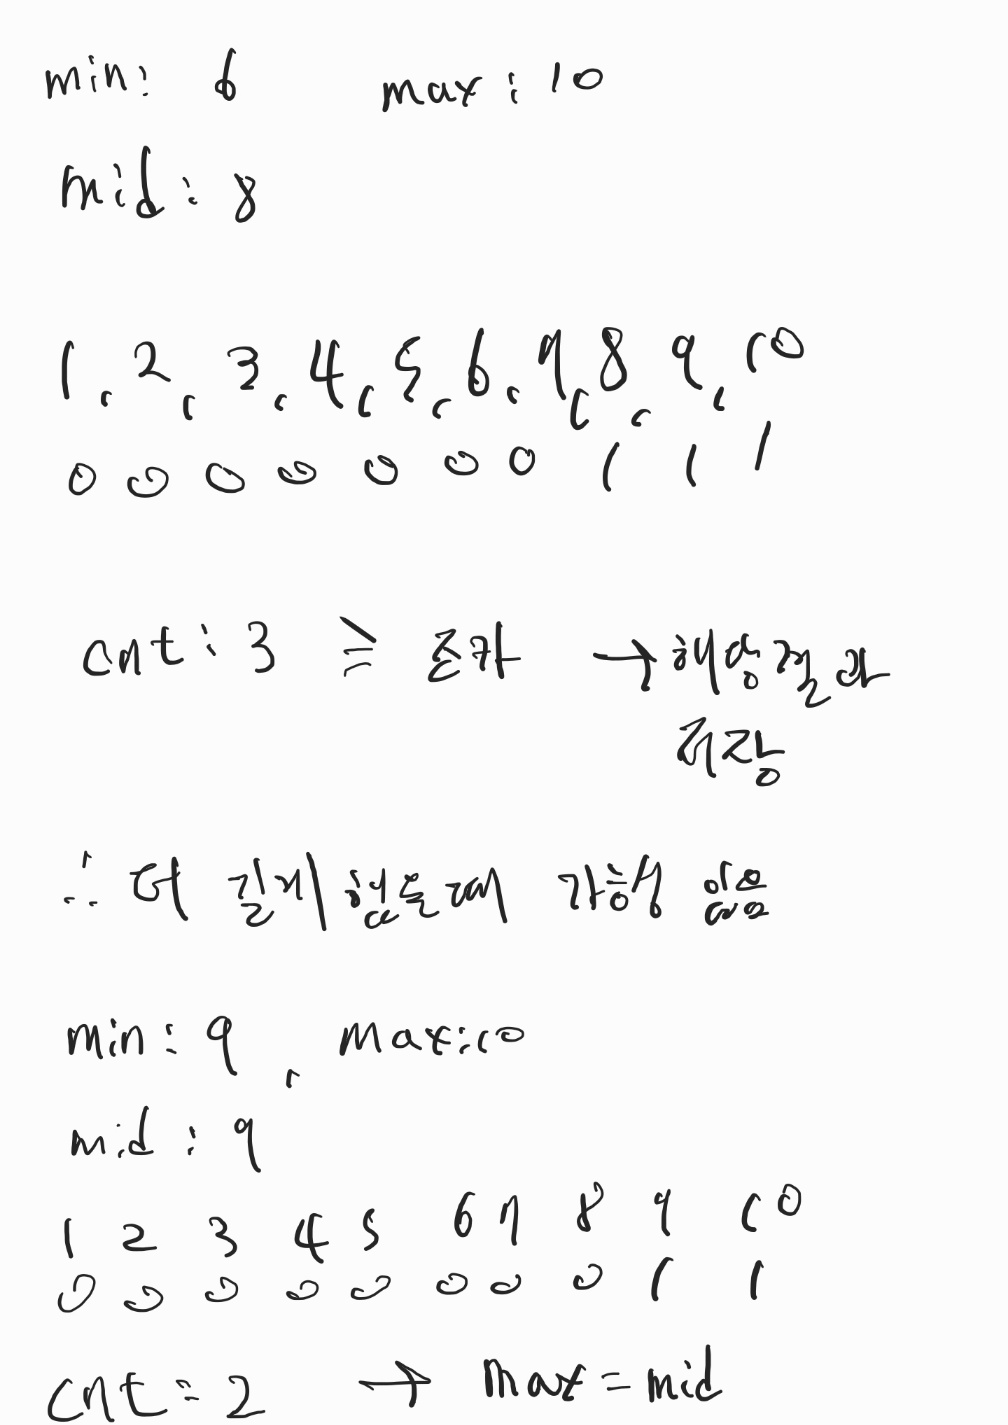 min: 6 max: 10
mid: 8
1, 2, 3, 4, 5, 6, 7, 8, 9, 10
0 0 0 0 0 0 0 1 1 1
cnt: 3 ≥ 조각 → 해당결과
저장
∴ 더 길게 했을때 가능성 있음
min: 9, max: 10
mid: 9
1 2 3 4 5 6 7 8 9 10
0 0 0 0 0 0 0 0 1 1
cnt: 2 → max = mid